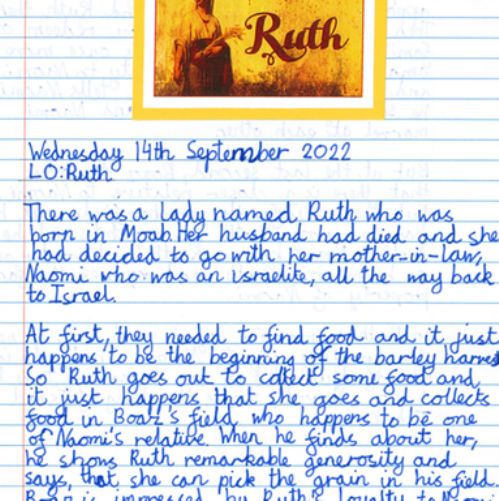 Ruth
Wednesday 14th September 2022
LO:Ruth
There was a lady named Ruth who was
born in Moab. Her husband had died and she
had decided to go with her mother-in-law,
Naomi who was an israelite, all the way back
to Israel.
At first, they needed to find food and it just
happens to be the beginning of the barley harvest
So Ruth goes out to collect some food and
it just happens that she goes and collects
food in Boaz's field, who happens to be one
of Naomi's relative. When he finds about her,
he shows Ruth remarkable generosity and
says, that she can pick the grain in his field.
Boaz is impressed by Ruth's loyalty to Naomi